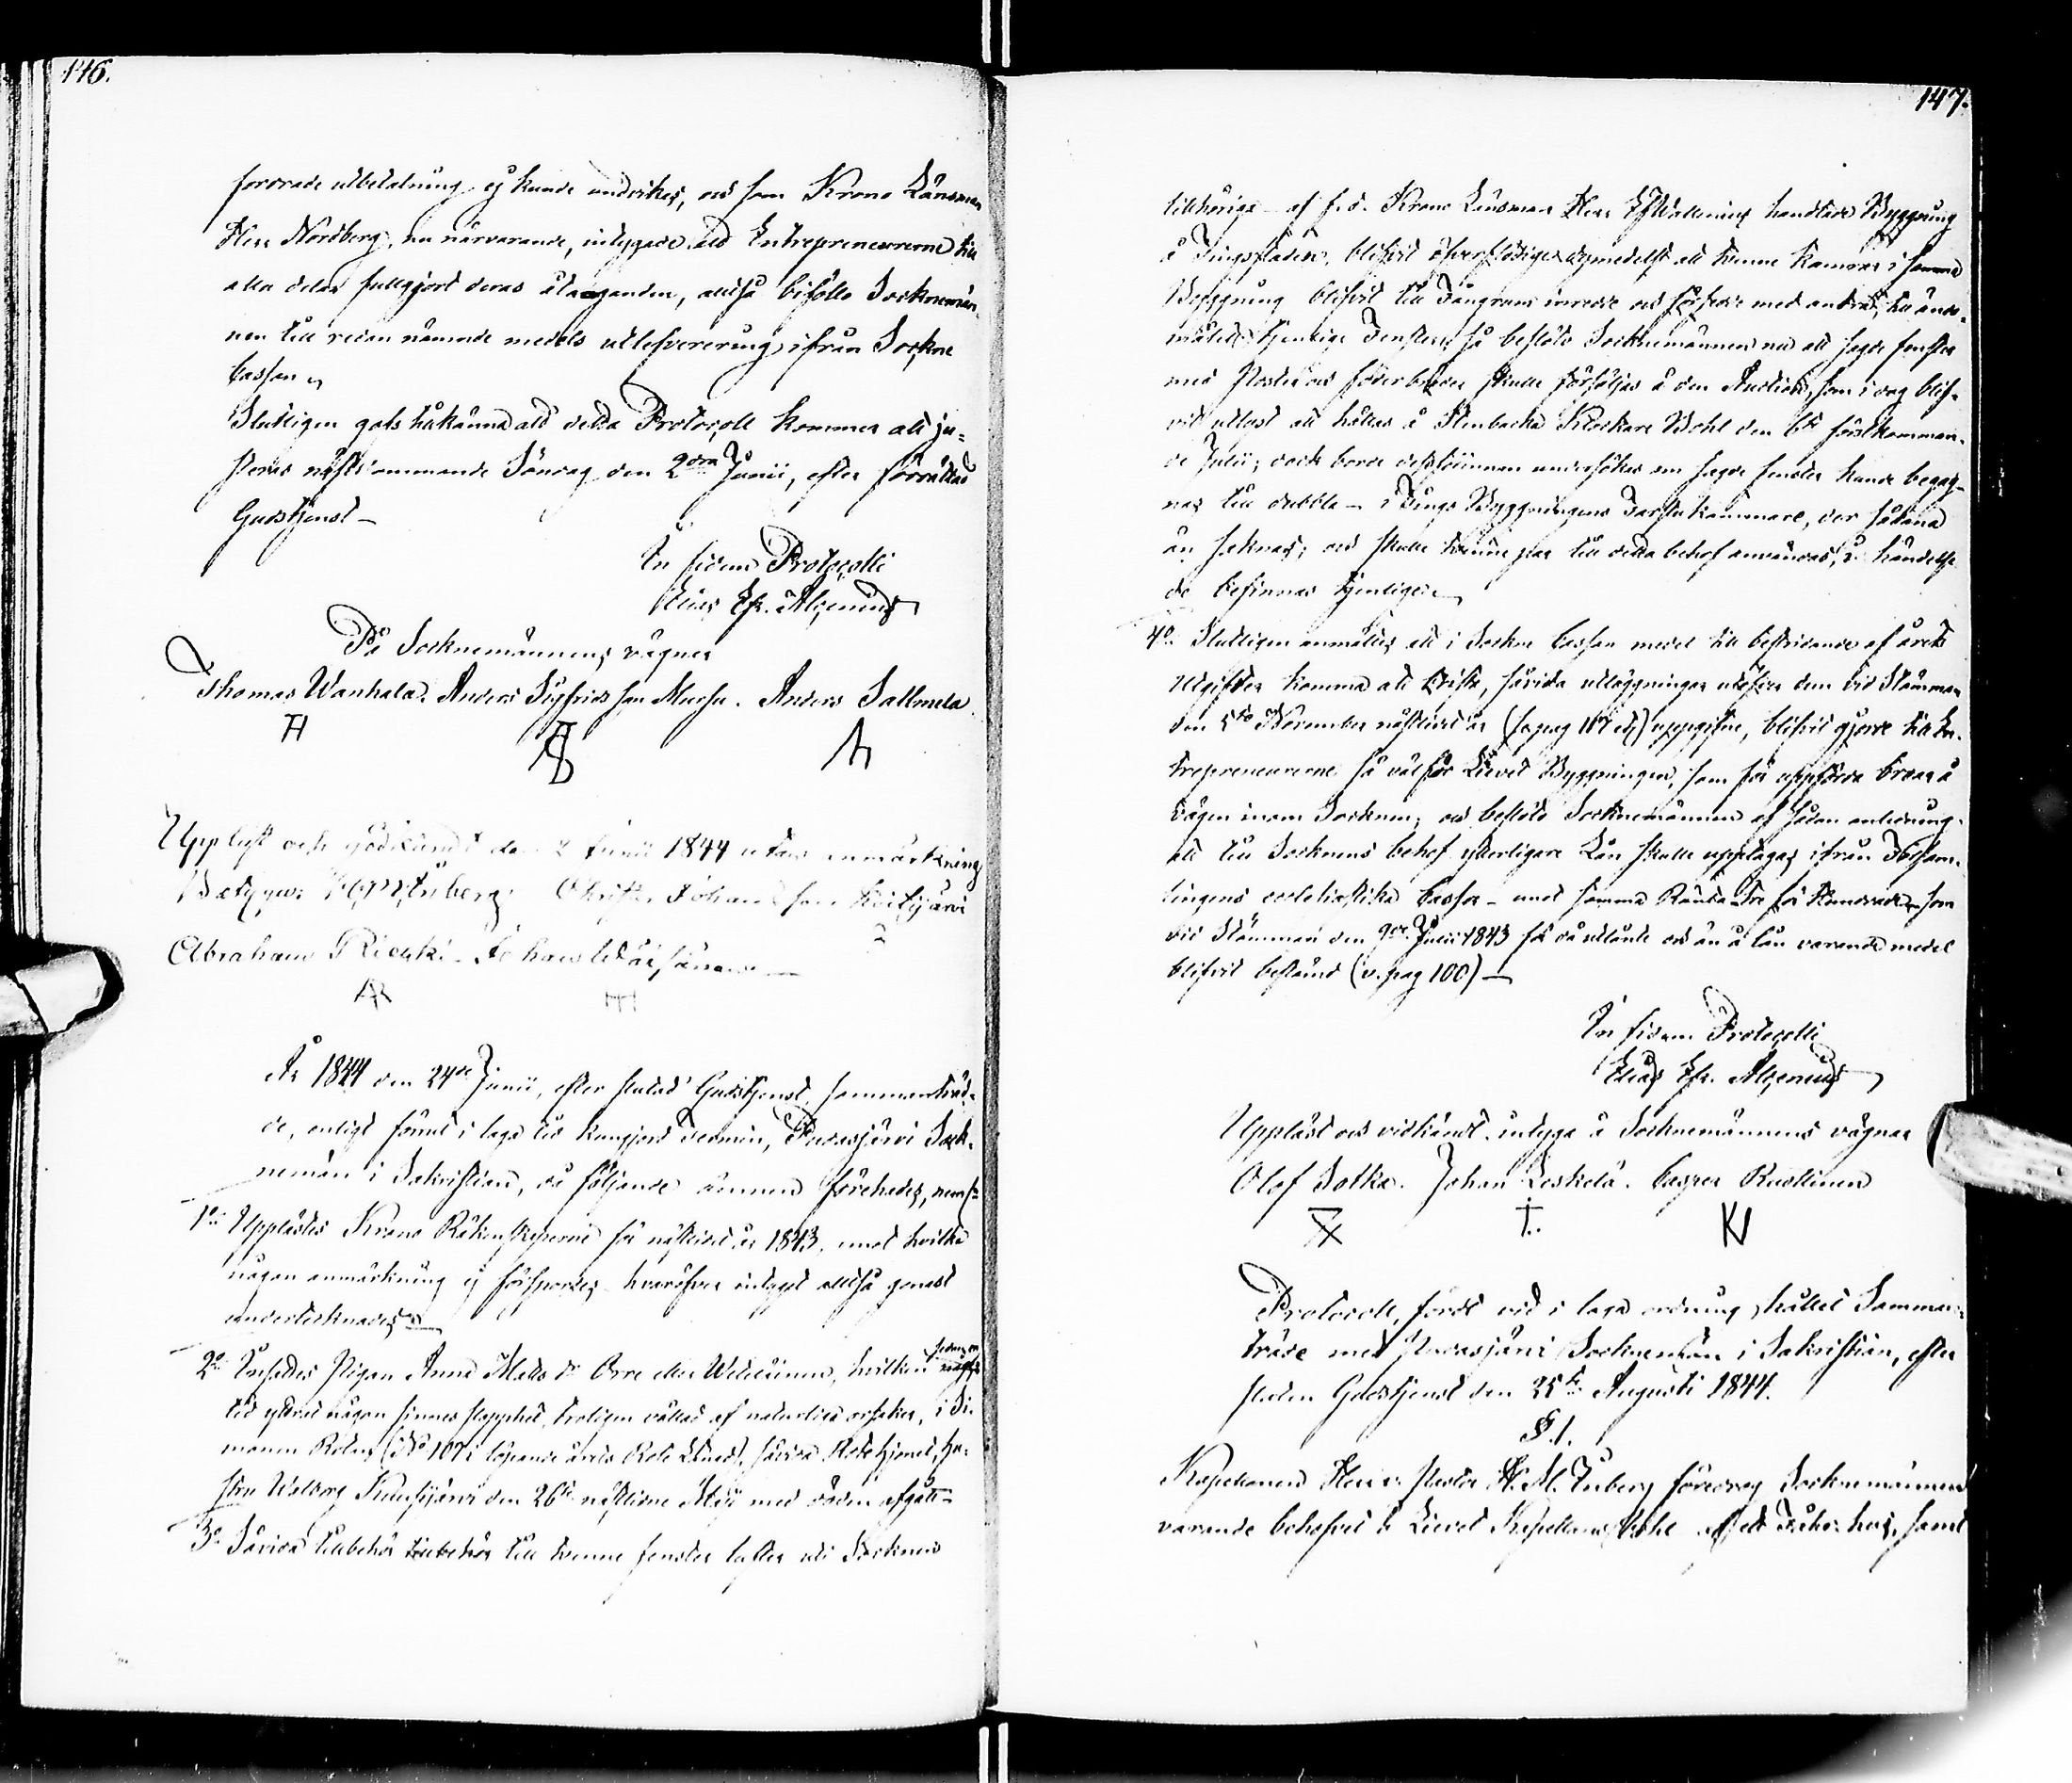 146.
fordrade utbetalning ej kunde undvikas, och som Krono Länsman
Herr Nordberg, nu närvarande, intygade att Entrepreneurerne till
alla delar fullgjort deras åtaganden, alltså biföllo Socknemän-
nen till redan nämnde medels utlefvererung ifrån Sockne
Cassan
Slutligen gafs tillkänna att detta Protocoll kommer att ju-
steras nästkommande Söndag den 2dra Junii, efter förrättad
Gudstjenst –
In fidem Protocolli
Elias Ef. Alcenius
På Socknemännens vägnar
Thomas Wanhala. Anders Sigfridsson Mursu. Anders Sallmela
Uppläst och godkändt den 2 Junii 1844 utan anmärkning
Betygar Tuberg. Christer Johansson
Abraham Rieki. Johan
År 1844 den 24de Junii, efter slutad Gudstjenst, sammanträd-
de, enligt förut i laga tid kungjord Termin, Pudasjärvi Sock-
nemän i Sakristian, då följande ämnen förehades, nemln
1o Upplästes Krono Räkenskaperne för nästledet år 1843. mot hvilka
någon anmärkning ej försportes hvaröfver intyget alltså genast
undertecknades –
2o Pigan Anna Matts dr Orre eller, hvilken sedan en
tid yttrat någon sinnes slapphet, troligen vållad af naturliga orsaker, i Si-
monen Rotan (No 107 i löpande årets Rote Längd), såvida Rotehjonet, Hu-
stru Walborg den 26te nästledne Maji med döden afgått –
3o Såvida tillbehör till tvenne fenster lufter uti Socknen
147.
tillhörige – af f.d. Krono Länsman Herr Wallenius handlade Byggnung
å Tingsstaden, blifvit öfverflödiga derymedelst att tvenne Kamrar i samma
Byggnung blifvit till Tingsrum inredde och försedde med andra, till ända-
målet tjenlige Fenster, så beslöto Socknemännen nu att sagde fenster
med Poster och foderbräder skulle försäljas å den Auction, som i dag blif-
vit utlyst att hållas å Stenbacka Klockare Bohl den 6te förstkomman-
de Julii; dock borde dessförinnan undersökas om sagde fenster kunde begag-
nas till dubbla – i Tings Byggnungens Farstukammare, der sådana
än saknas; och skulle tvenne par till detta behof användas, i händelse
de befinnas tjenlige –
4o Slutligen anmältes att i Sockne Cassan medel till bestridande af årets
Utgifter komma att brista, såvida utläggningar utöfver dem vid Stämman
den 5te November nästledet år (se pag 117 etc) uppgifne, blifvit gjorde till En-
trepreneurerne så väl för Liivet Byggningen, som för uppförde broar å
vägen inom Socknen; och beslöto Socknemännen af sådan anledning.
att till Socknens behof ytterligare Lån skulle upptagas ifrån Försam-
lingens ecclesiastika Cassor – mot samma Ränta Tre för Hundrade, som
vid Stämman den 9de Julii 1843 för då utlånte och än å lån varande medel
blifvit bestämd (v. pag 100) –
In fidem Protocolli
Elias Ef. Alcenius
Uppläst och vidkändt. intyga å Socknemännens vägnar
Olof Sotka. Johan Leskelä. Casper Ruottinen
Protocoll, fördt vid i laga ordnung hållet Samman-
träde med Pudasjärvi Socknemän i Sakristian, efter
sluten Gudstjenst den 25te Augusti 1844.
§.1.
Kapellanen Herr v. Pastor H. M. Tuberg föredrog Socknemännen
varande behofvet å Liivet Kapellans Bohl af ett Fähus, samt